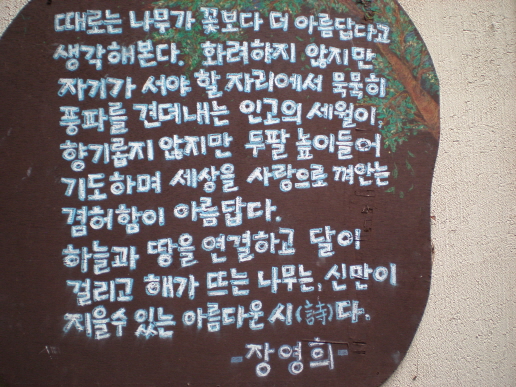 때로는 나무가 꽃보다 더 아름답다고
생각해본다. 화려하지 않지만
자기가 서야 할 자리에서 묵묵히
풍파를 견뎌내는 인고의 세월이,
향기롭지 않지만 두팔 높이들어
기도하며 세상을 사랑으로 껴안는
겸허함이 아름답다.
하늘과 땅을 연결하고 달이
걸리고 해가 뜨는 나무는, 신만이
지을수 있는 아름다운 시(詩)다.
-장영희-